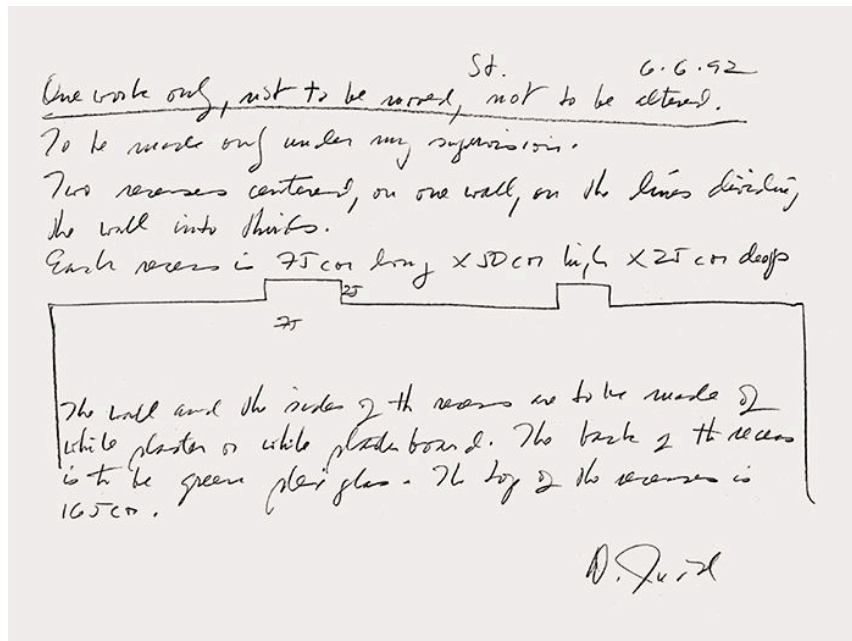 St. 6.6.92
One work only, not to be moved, not to be altered.
To be made only under my supervision.
Two recesses centered, on one wall, on the lines dividing
the wall into thirds.
Each recess is 75 cm long x 50 cm high x 25 cm deep
25
75
The wall and the sides of th recess are to be made of
white plaster or white plasterboard. The back of th recess
is to be green plexiglas. The top of the recesses is
165 cm.
D. Judd